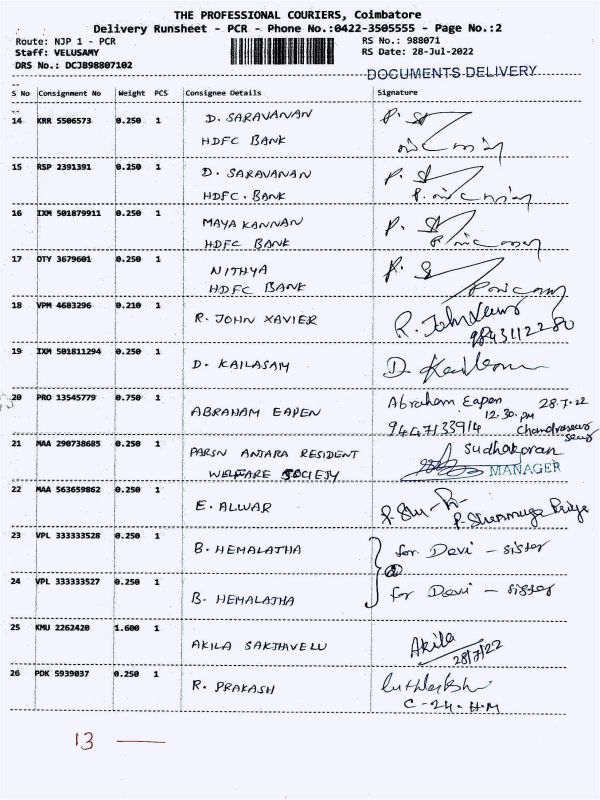 THE PROFESSIONAL COURIERS, Coimbatore
Delivery Runsheet - PCR - Phone No.:0422-3505555 - Page No.:2
Route: NJP 1 - PCR RS No.: 988071
Staff: VELUSAMY RS Date: 28-Jul-2022
DRS No.: DCJB98807102
DOCUMENTS DELIVERY
S No Consignment No Weight PCS Consignee Details Signature
14 KRR 5506573 0.250 1 D. SARAVANAN
HDFC BANK
15 RSP 2391391 0.250 1 D. SARAVANAN
HDFC. BANK
16 IXM 501879911 0.250 1 MAYA KANNAN
HDFC BANK
17 OTY 3679601 0.250 1 NITHYA
HDFC BANK
18 VPM 4683296 0.210 1 R. JOHN XAVIER R. John
9843112280
19 IXM 501811294 0.250 1 D. KAILASAM D.
20 PRO 13545779 0.750 1 ABRAHAM EAPEN Abraham Eapen 28.7.22
12.30. PM
9447133914
21 MAA 290738685 0.250 1 PARSN ANTARA RESIDENT Sudhakaran
WELFARE SOCIETY MANAGER
22 MAA 563659862 0.250 1 E. ALWAR
P. Shenmuga Priya
23 VPL 333333528 0.250 1 B. HEMALATHA for Devi - sister
24 VPL 333333527 0.250 1 B. HEMALATHA for Devi - sister
25 KMU 2262420 1.600 1 AKILA SAKTHAVELU Akila
28/7/22
26 PDK 5939037 0.250 1 R. PRAKASH
C-24-H.M
13